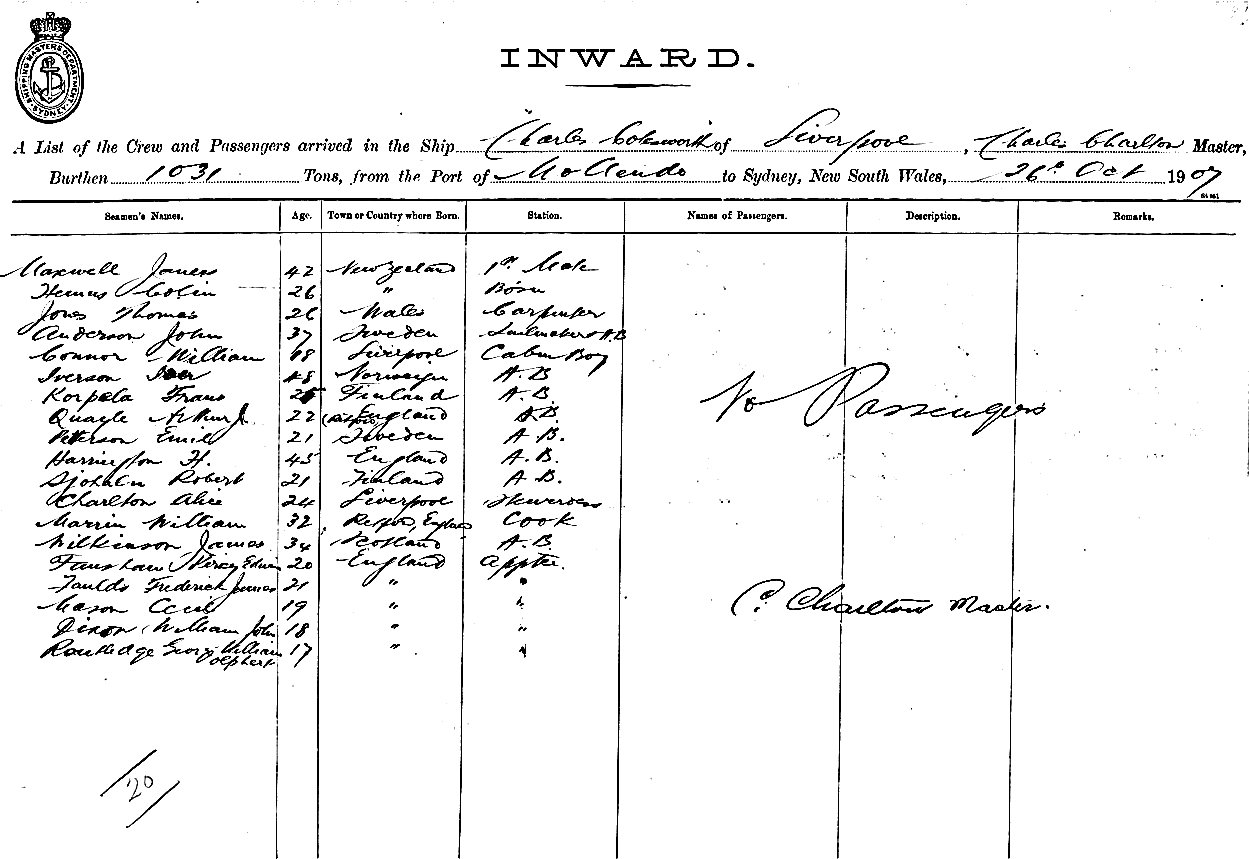 SHIPPING MASTERS DEPARTMENT SYDNEY
INWARD.
A List of the Crew and Passengers arrived in the Ship Charles Cotesworth of Liverpool, Charles Charlton Master,
Burthen 1031 Tons, from the Port of Mollendo to Sydney, New South Wales, 26th Oct 1907
Seamen's Names. Age. Town or Country where Born. Station. Names of Passengers. Description. Remarks.
Maxwell James 42 New Zealand 1st Mate
Colin 26 " Bosn
Jones Thomas 26 Wales Carpenter
Anderson John 37 Sweden Sailmaker & A.B
Connor William 18 Liverpool Cabin Boy
Iverson Iver 48 Norwegin A.B
Korpela Frans 25 Finland A.B.
Quayle Arthur J. 22 England A.B.
No Passengers
Petterson Emil 21 Sweden A.B.
Harrington H. 45 England A.B.
Sjoholm Robert 21 Finland A.B.
Charlton Alice 24 Liverpool Stewardess
Marrin William 32 England Cook
Wilkinson James 34 Scotland A.B.
Fanshaw Percy Edwin 20 England Apptce.
Faulds Frederick James 21 " "
Mason Cecil 19 " "
C. Charlton Master.
Dixon William John 18 " "
Routledge George William 17 " "
Olphert
20